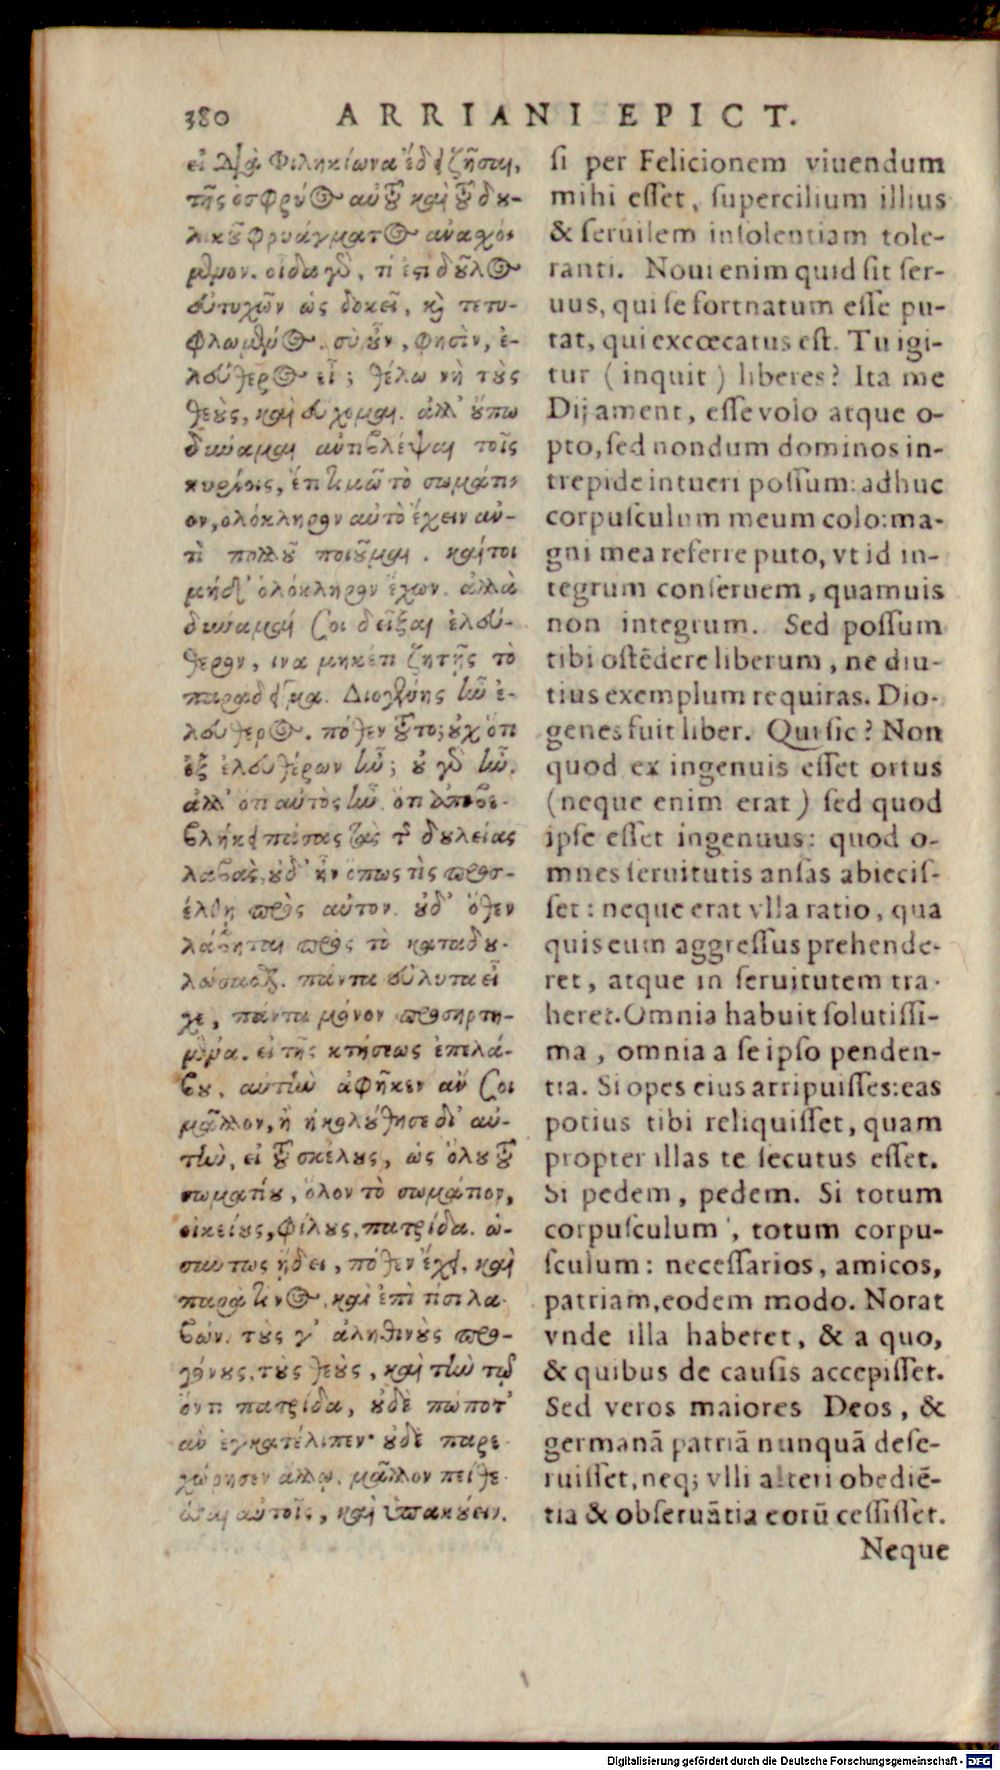 380 ARRIANI EPICT.
εἰ διὰ Φιληκίωνα ἔδει ζῆσαι,
τῆς ὀσφρύος αὐτοῦ καὶ τοῦ δου-
λικοῦ φρυάγματος ἀναχό-
μενον. οἶδα γὰρ, τί ἐστι δοῦλος
εὐτυχῶν ὡς δοκεῖ, καὶ τετυ-
φλωμένος. σὺ οὖν, φησὶν, ἐ-
λεύθερος εἶ; θέλω νὴ τοὺς
θεοὺς, καὶ εὔχομαι. ἀλλ' οὔπω
δύναμαι ἀντιβλέψαι τοῖς
κυρίοις, ἔτι τιμῶ τὸ σωμάτι-
ον, ὁλόκληρον αὐτὸ ἔχειν ἀν-
τὶ πολλοῦ ποιοῦμαι. καίτοι
μηδ' ὁλόκληρον ἔχων. ἀλλὰ
δύναμαί σοι δεῖξαι ἐλεύ-
θερον, ινα μηκέτι ζητῇς τὸ
παράδειγμα. Διογένης ἦν ἐ-
λεύθερος. πόθεν τοῦτο; οὐχ ὅτι
ἐξ ἐλευθέρων ἦν; οὐ γὰρ ἦν.
ἀλλ' ὅτι αὐτὸς ἦν. ὅτι ἀποβε-
βλήκει πάσας τὰς τῆς δουλείας
λαβὰς, οὐδ' ἦν ὅπως τὶς προσ-
έλθῃ πρὸς αὐτον. οὐδ' ὅθεν
λάβηται πρὸς τὸ καταδου-
λώσασθαι. πάντα εὔλυτα εἶ
χε, παντα μόνον προσηρτη-
μένα. εἰ τῆς κτήσεως ἐπελά-
βου, αυτὴν ἀφῆκεν ἄν σοι
μᾶλλον, ἢ ἠκολούθησε δι' αὐ-
τὴν, εἰ τοῦ σκέλους, ὡς ὅλου τοῦ
σωματίου, ὅλον τὸ σωμάτιον,
οἰκείους, φίλους, πατρίδα. ὡ-
σαύτως ᾔδει, πόθεν ἔχει, καὶ
παρὰ τίνος, καὶ ἐπὶ τίσι λα-
βών. τοὺς γ' ἀληθινοὺς προ-
γόνους, τοὺς θεοὺς, καὶ τὴν τῷ
ὄντι πατρίδα, οὐδὲ πώποτ'
ἀν ἐγκατέλιπεν· οὐδὲ παρε
χώρησεν ἄλλῳ, μᾶλλον πείθε
σθαι αὐτοῖς, καὶ ὑπακούειν.
si per Felicionem viuendum
mihi esset, supercilium illius
& seruilem insolentiam tole-
ranti. Noui enim quid sit ser-
uus, qui se fortnatum esse pu-
tat, qui excœcatus est. Tu igi-
tur (inquit) liberes? Ita me
Dij ament, esse volo atque o-
pto, sed nondum dominos in-
trepide intueri possum: adhuc
corpusculum meum colo: ma-
gni mea referre puto, vt id in-
tegrum conseruem, quamuis
non integrum. Sed possum
tibi ostēdere liberum, ne diu-
tius exemplum requiras. Dio-
genes fuit liber. Qui sic? Non
quod ex ingenuis esset ortus
(neque enim erat) sed quod
ipse esset ingenuus: quod o-
mnes seruitutis ansas abiecis-
set: neque erat vlla ratio, qua
quis eum aggressus prehende-
ret, atque in seruitutem tra-
heret. Omnia habuit solutissi-
ma, omnia a se ipso penden-
tia. Si opes eius arripuisses: eas
potius tibi reliquisset, quam
propter illas te secutus esset.
Si pedem, pedem. Si totum
corpusculum, totum corpu-
sculum: necessarios, amicos,
patriam, eodem modo. Norat
vnde illa haberet, & a quo,
& quibus de causis accepisset.
Sed veros maiores Deos, &
germanā patriā nunquā dese-
ruisset, neq; vlli alteri obediē-
tia & obseruātia eorū cessisset.
Neque
Digitalisierung gefördert durch die Deutsche Forschungsgemeinschaft - DFG